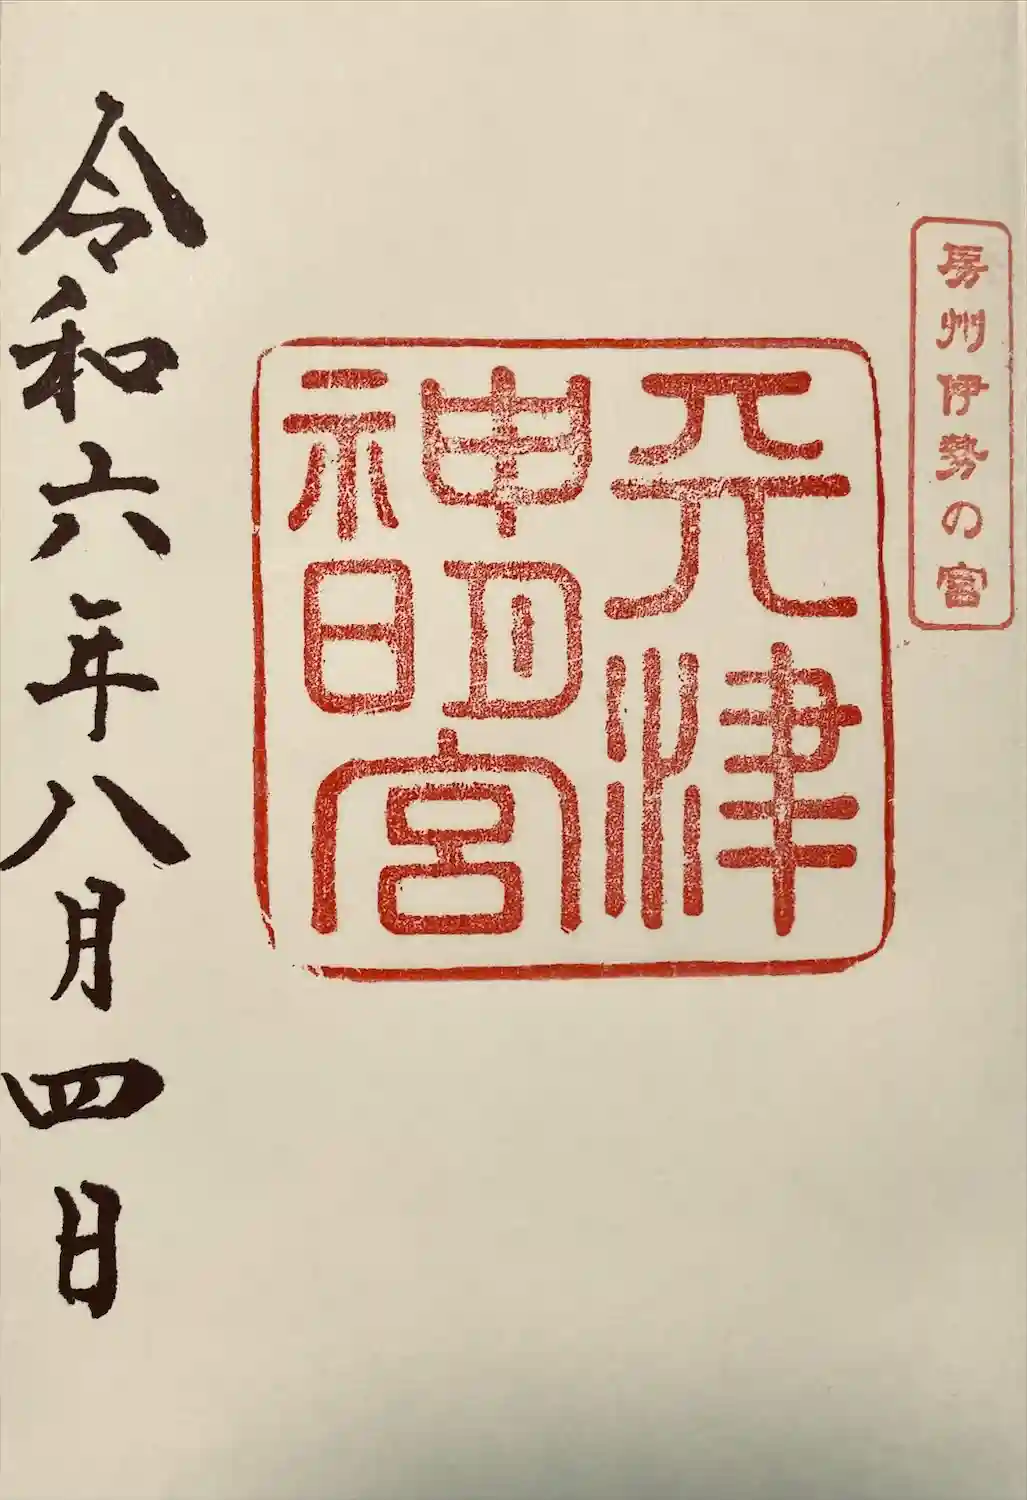 房州伊勢の宮
天津
神明宮
令和六年八月四日